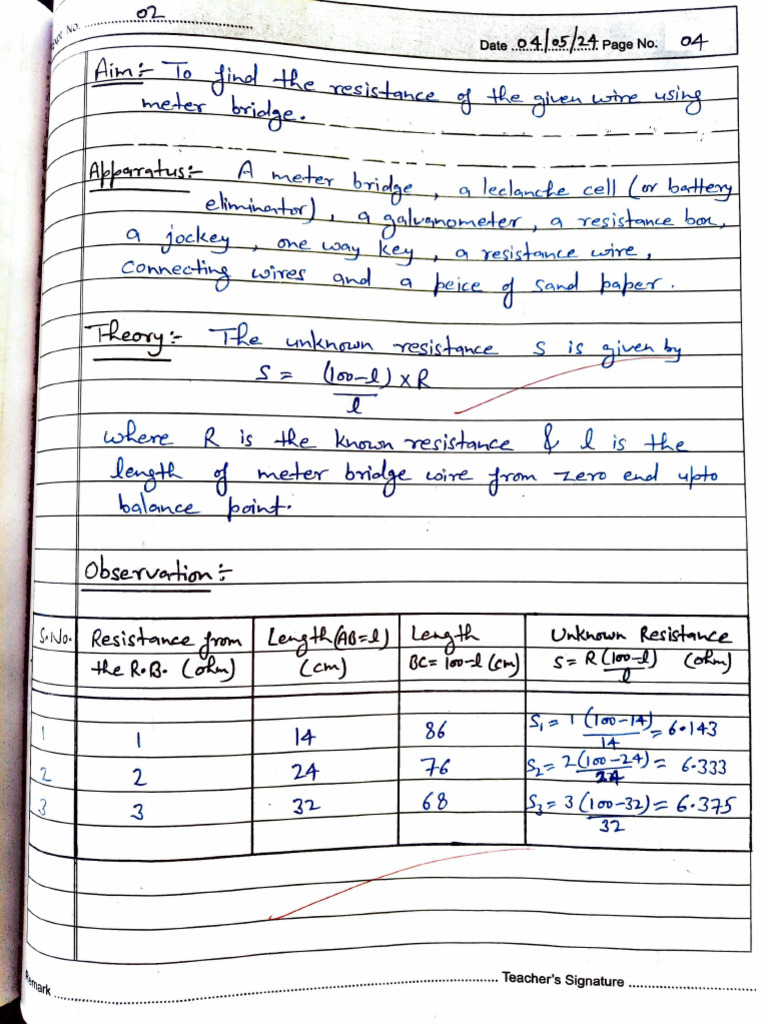 02
Date 04/05/24 Page No. 04
Aim:- To find the resistance of the given wire using
meter bridge.
Apparatus:- A meter bridge, a leclanche cell (or battery
eliminator), a galvanometer, a resistance box,
a jockey, one way key, a resistance wire,
connecting wires and a peice of sand paper.
Theory:- The unknown resistance S is given by
S = (100-l) x R
l
where R is the known resistance & l is the
length of meter bridge wire from zero end upto
balance point.
Observation:-
S.No. Resistance from Length (AB=l) Length Unknown Resistance
the R.B. (ohm) (cm) BC= 100-l (cm) S = R (100-l) (ohm)
l
1 1 14 86 S₁ = 1 (100-14) = 6.143
14
2 2 24 76 S₂ = 2(100-24) = 6.333
24
3 3 32 68 S₃ = 3 (100-32) = 6.375
32
Teacher's Signature